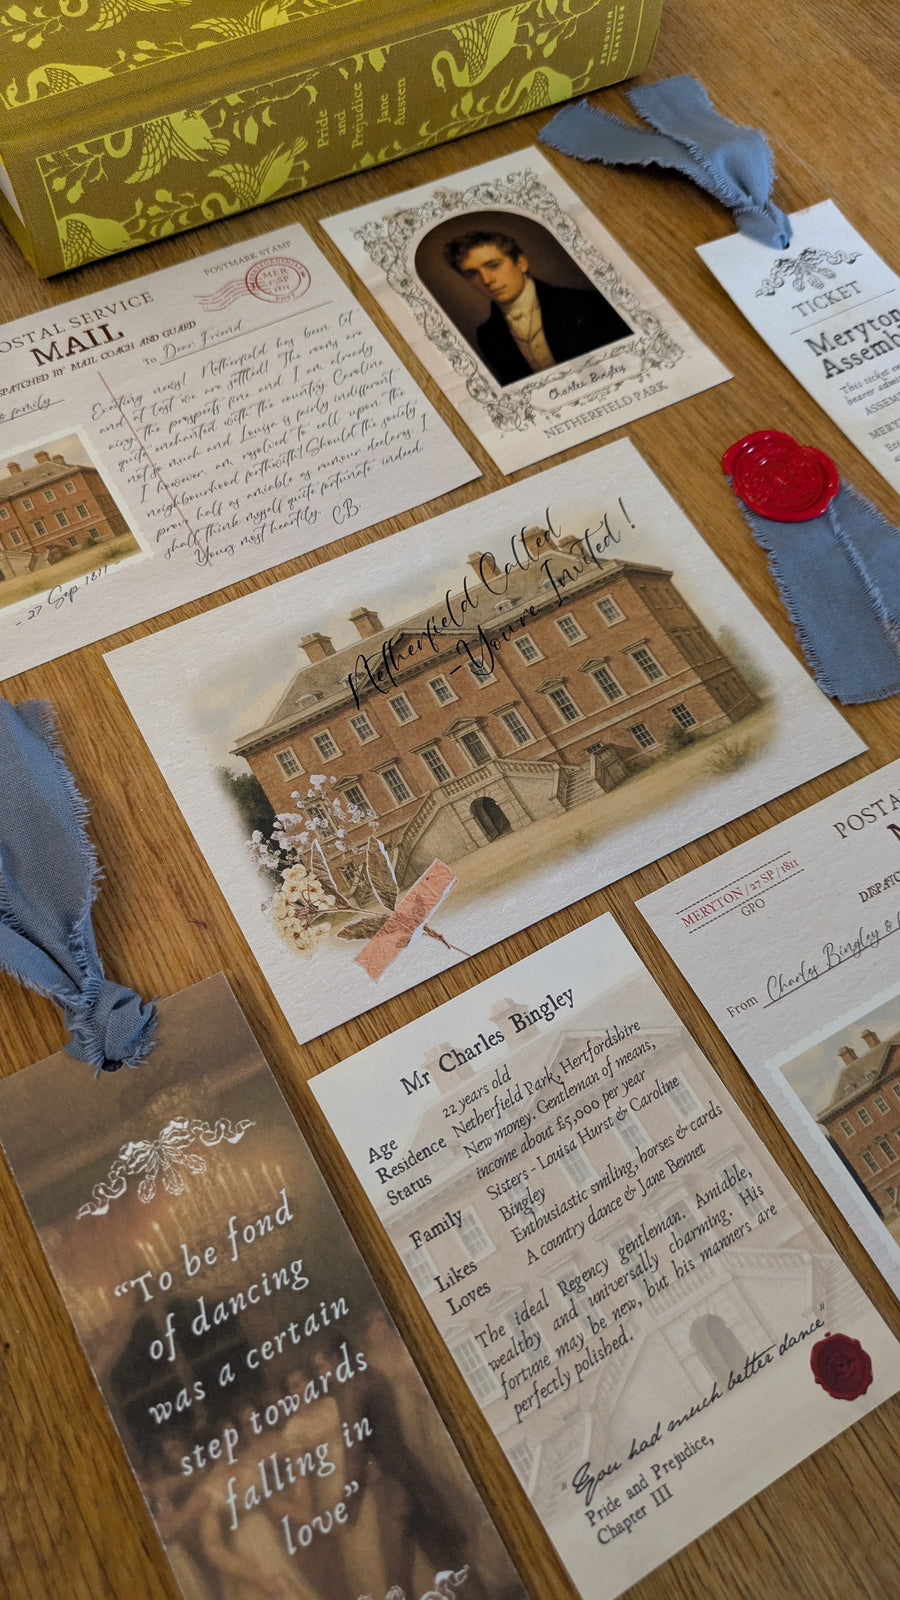 PENGUIN
CLASSICS
Pride
and
Prejudice
Jane
Austen
POSTMARK STAMP
MER
27 SP
1811
POST
OSTAL SERVICE
MAIL
SPATCHED BY MAIL COACH AND GUARD
To Dear Friend
family
Exciting news! Netherfield has been let
and at last we are settled! The rooms are
airy, the prospects fine and I am already
quite enchanted with the country. Caroline
not so much and Louisa is fairly indifferent.
I however, am resolved to call upon the
neighbourhood forthwith! Should the society
prove half as amiable as rumour declares, I
shall think myself quite fortunate indeed.
Yours most heartily,
CB.
- 27 Sep 1811 -
Charles Bingley
NETHERFIELD PARK
TICKET
Meryton
Assemb
This ticket en
bearer admi
ASSEMB
MERYT
Netherfield Called
-You're Invited!
POSTA
MERYTON / 27 SP / 1811
GPO
DISPATC
From Charles Bingley &
Mr Charles Bingley
Age 22 years old
Residence Netherfield Park, Hertfordshire
Status New money. Gentleman of means,
income about £5,000 per year
Family Sisters - Louisa Hurst & Caroline
Bingley
Likes Enthusiastic smiling, horses & cards
Loves A country dance & Jane Bennet
The ideal Regency gentleman. Amiable,
wealthy and universally charming. His
fortune may be new, but his manners are
perfectly polished.
"You had much better dance"
Pride and Prejudice,
Chapter III
“To be fond
of dancing
was a certain
step towards
falling in
love”